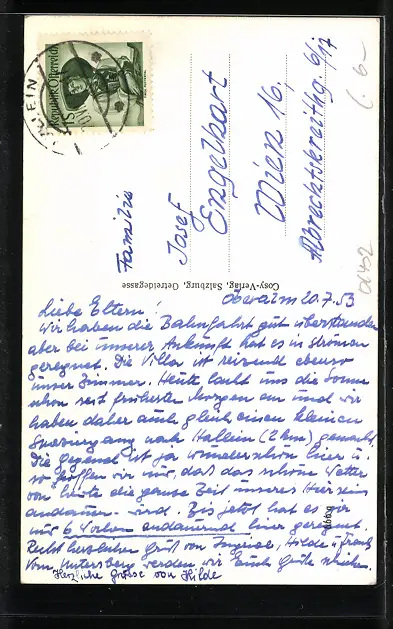 HALLEIN
Republik Österreich
Familie
Josef
Engelhart
Wien 16.
6/17
Cosy-Verlag, Salzburg, Getreidegasse
Oberalm 20.7.53
Liebe Eltern!
Wir haben die Bahnfahrt gut überstanden
aber bei unserer Ankunft hat es in Strömen
geregnet. Die Villa ist reizend ebenso
unser Zimmer. Heute lacht uns die Sonne
schon seit frühesten Morgen an und wir
haben daher auch gleich einen kleinen
Spaziergang nach Hallein (2 km) gemacht.
Die Gegend ist ja wunderschön hier u.
so hoffen wir nur, daß das schöne Wetter
von heute die ganze Zeit unseres Hierseins
andauern wird. Bis jetzt hat es vor
nur 6 Wochen andauernd hier geregnet.
Recht herzlichen Gruß von Hilde u. Franz
Vom Untersberg werden wir Euch Grüße schicken.
Herzliche Grüsse von Hilde